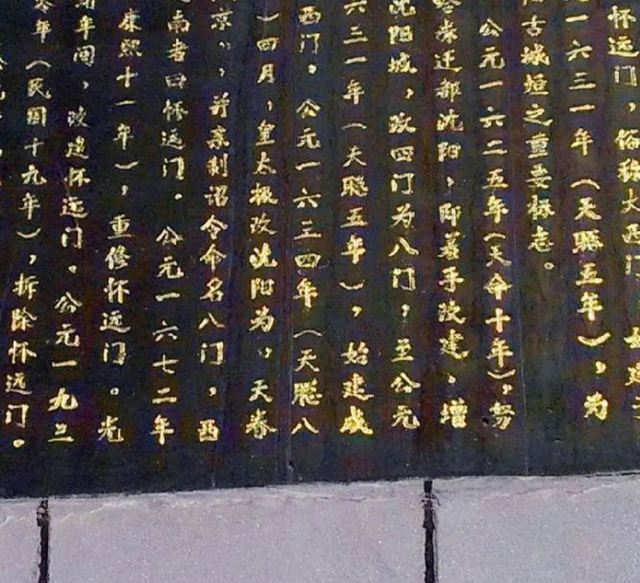 怀远门，俗称大西门
一六三一年（天聪五年），为
古城垣之重要标志。
公元一六二五年（天命十年），努
迁都沈阳，即着手改建，增
沈阳城，改四门为八门，至公元
六三一年（天聪五年），始建成
西门。公元一六三四年（天聪八
）四月，皇太极改沈阳为，天眷
京，，并亲制诏令命名八门，西
南者曰怀远门。公元一六七二年
康熙十一年），重修怀远门。光
年间，改建怀远门。公元一九三
年（民国十九年），拆除怀远门。